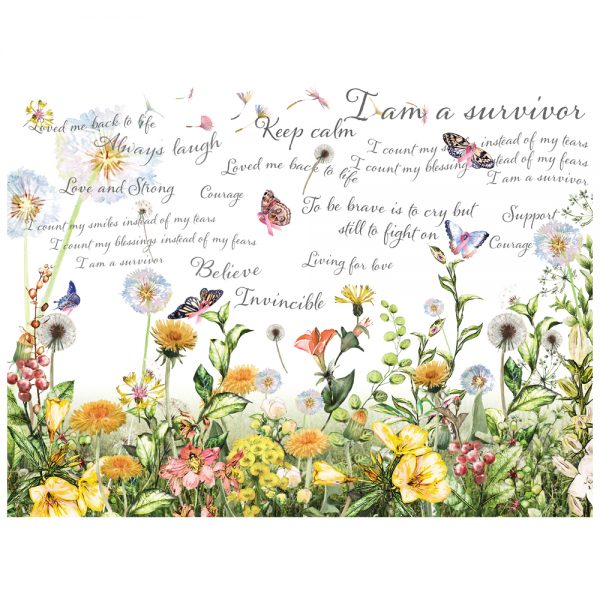 I am a survivor
Loved me back to life
Always laugh
Keep calm
I count my s instead of my tears
I count my blessing stead of my fears
I am a survivor
Loved me back to life
Love and Strong
Courage
To be brave is to cry but
still to fight on
Support
Courage
I count my smiles instead of my tears
I count my blessings instead of my fears
I am a survivor
Believe
Living for love
Invincible